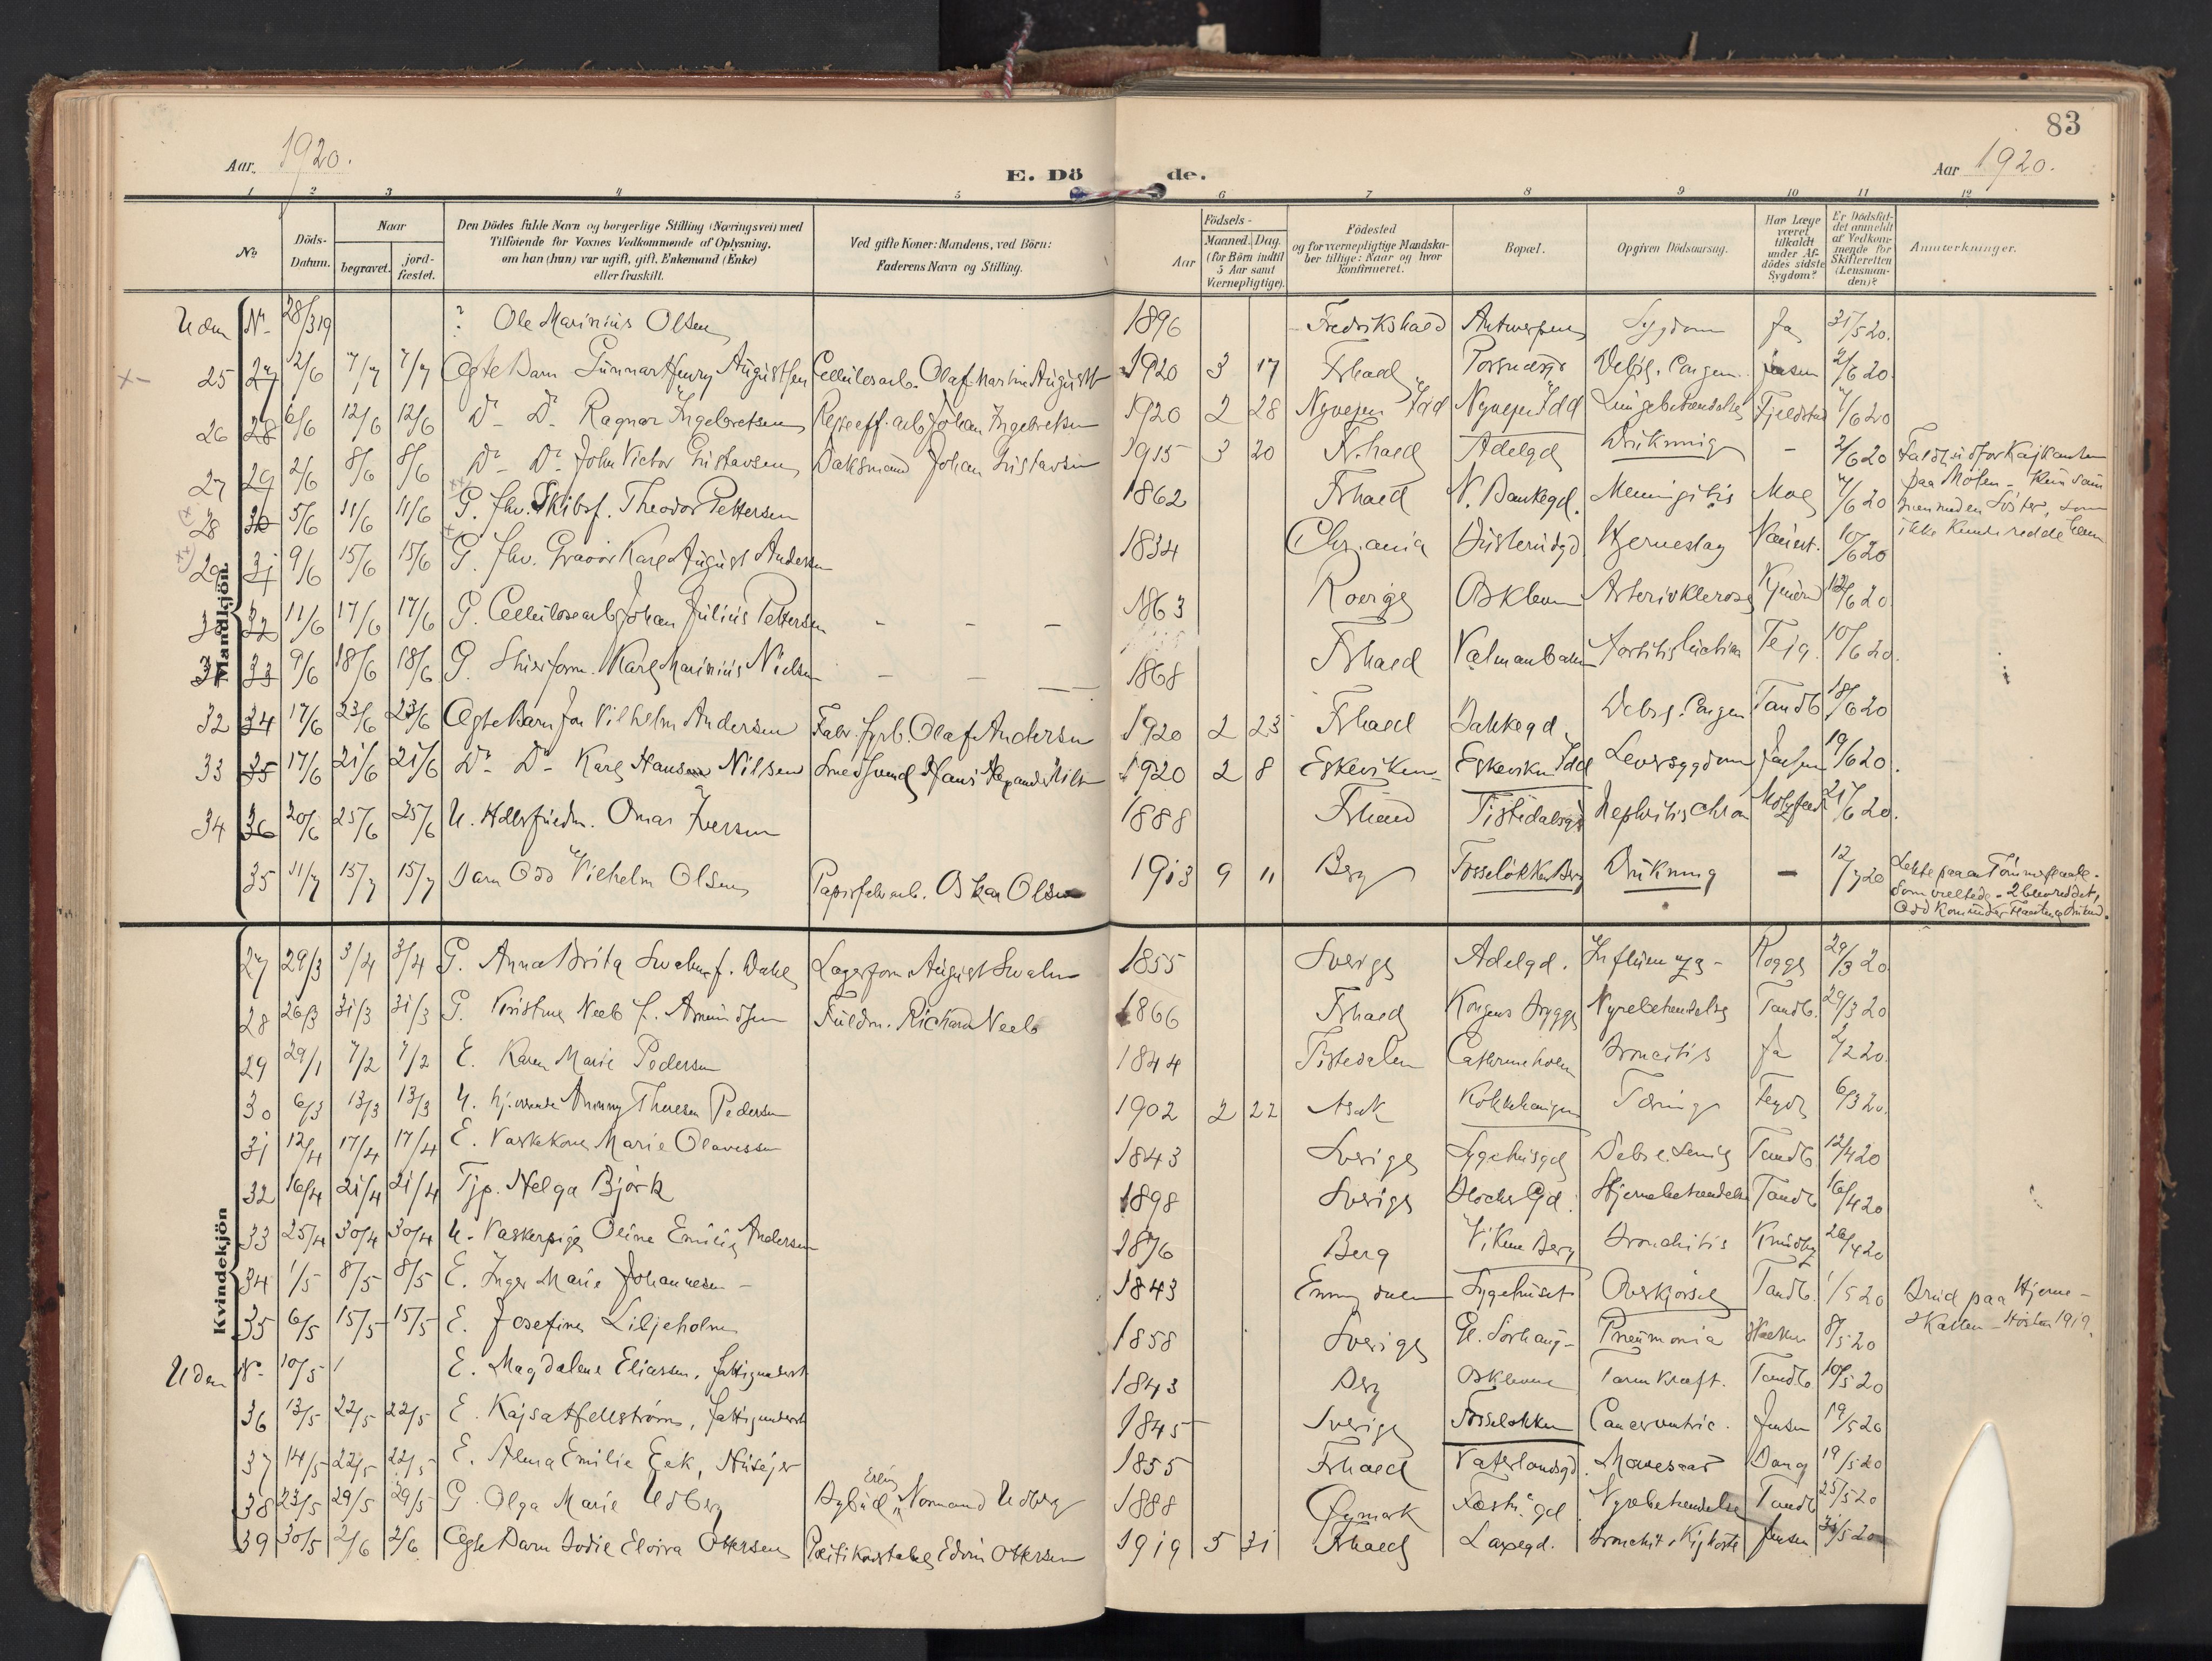 83
Aar. 1920.
E. Dö de.
Aar 1920.
1 2 3 4 5 6 7 8 9 10 11 12
No
Döds-
Datum.
Naar
begravet.
jord-
fæstet.
Den Dödes fulde Navn og borgerlige Stilling (Næringsvei) med
Tilföiende for Voxnes Vedkommende af Oplysning,
om han (hun) var ugift, gift, Enkemand (Enke)
eller fraskilt.
Ved gifte Koner: Mandens, ved Börn:
Faderens Navn og Stilling.
Aar
Födsels-
Maaned. Dag.
(for Börn indtil
5 Aar samt
Værnepligtige).
Födested
og for værnepligtige Mandska-
ber tillige: Naar og hvor
konfirmeret.
Bopæl.
Opgiven Dödsaarsag.
Har Læge
været
tilkaldt
under Af-
dödes sidste
Sygdom?
Er Dödsfal-
det anmeldt
af Vedkom-
mende for
Skifteretten
(Lensman-
den)?
Anmærkninger.
Mandkjön
Uden No 28/3 19 ? Ole Marinius Olsen 1896 Fredrikshald Antwerpen Sygdom Ja 31/5 20.
25 27 2/6 7/7 7/7 Ægte Barn Gunnar Henry Augustsen Cellulosearb. Olaf Martin 1920 3 17 Frhald Jensen 2/6 20
26 28 6/6 12/6 12/6 Do Do Ragnar Ingebretsen Johan Ingebretsen 1920 2 28 Nyvejen Idd Nyvejen Idd Lungebetændelse Fjeldstad 7/6 20
27 29 2/6 8/6 8/6 Do Do John Victor Gustavsen Baksmand Johan Gustavsen 1915 3 20 F.hald Adelgd Drukning - 2/6 20 Faldt ud for Kajkanten
paa Mølen - Kun sammen med en Søster, som
ikke kunde redde ham
28 30 5/6 11/6 11/6 G. fhv. Skibsf. Theodor Pettersen 1862 Frhald N. Bankegd. Meningitis Moe 7/6 20
29 31 9/6 15/6 15/6 G. fhv. Graver Karl August Andersen 1834 Chr.ania Hjerneslag 10/6 20
30 32 11/6 17/6 17/6 G. Cellulosearb. Johan Julius Pettersen - - - 1863 Rverige Oskleven Arteriosklerose 12/6 20
31 33 9/6 18/6 18/6 G. Karl Marinius Nielsen - - - 1868 Frhald Teig 10/6 20.
32 34 17/6 23/6 23/6 Ægte Barn Jon Vilhelm Andersen Fabr. fyrb. Olaf Andersen 1920 2 23 Frhald Bakkegd. Tandb 18/6 20
33 35 17/6 21/6 21/6 Do Do Karl Hansen Nilsen Smedsvend Hans Alexander Nilsen 1920 2 8 Eskeviken Eskeviken Idd Leversygdom Jensen 19/6 20.
34 36 20/6 25/6 25/6 U. Omar Iversen 1888 Frhald Tistedalsgd Nephritis chron 21/6 20.
35 11/7 15/7 15/7 Barn Odd Vilhelm Olsen Papirfabr.arb. Oskar Olsen 1913 9 11 Berg Fosseløkken Berg Drukning - 12/7 20 Lekte paa en Tømmerflaate
som veltede - 2 blev reddet,
Odd kom under Flaaten og druknede.
Kvindekjön
27 29/3 3/4 3/4 G. Anna Brita Svalm f. Dahl Lagerform. August Svalm 1855 Sverige Adelgd. Influenza - Rogge 29/3 20
28 26/3 31/3 31/3 G. Kristine Neeb f. Amundsen Fuldm. Richard Neeb 1866 Frhald Kongens Brygge Nyrebetændelse Tandb. 29/3 20
29 29/1 7/2 7/2 E. Karen Marie Pedersen 1844 Tistedalen Cathrineholm Broncitis Ja 2/2 20.
30 6/3 13/3 13/3 U. hj.værende Theresa Pedersen 1902 2 22 Asak Tæring 6/3 20.
31 12/4 17/4 17/4 E. Vaskekone Marie Olavessen 1843 Sverige Sygehusgd Tandb 12/4 20
32 16/4 21/4 21/4 Tjp. Helga Björk 1898 Sverige Blochs Gd. Hjernebetændelse Tandb 16/4 20
33 25/4 30/4 30/4 U. Vaskerpige Oline Emilie Andersen 1876 Berg Viken Berg Bronchitis Knudtz 26/4 20
34 1/5 8/5 8/5 E. Inger Marie Johannesen - 1843 Enningdalen Sygehuset Overkjørsel Tandb. 1/5 20 Brud paa Hjerne-
skallen - Høsten 1919.
35 6/5 15/5 15/5 E. Josefine Liljeholm 1858 Sverige Gl. Sørhaug- Pneumonia 8/5 20
Uden No 10/5 1 E. Magdalene Eliassen, fattigunderst. 1843 Berg Osklevene Tarmkræft. Tandb. 10/5 20
36 13/5 22/5 22/5 E. Kajsa Afellström, fattigunderst 1845 Sverige Fosseløkken Cancer ventric. Jensen 19/5 20
37 14/5 22/5 22/5 E. Alma Emilie Eek, Husejer 1855 Frhald Vaterlandsgd. Mavesaar Bang 19/5 20
38 23/5 29/5 29/5 G. Olga Marie Udberg Bybud Erling Normand Udberg 1888 Øymark Fæstn.gd Nyrebetændelse Tandb 25/5 20
39 30/5 2/6 2/6 Ægte Barn Bodie Elvira Ottersen Politikonstabel Edvin Ottersen 1919 5 31 Frhald Laxegd. Bronchit. Kighoste Jensen 31/5 20